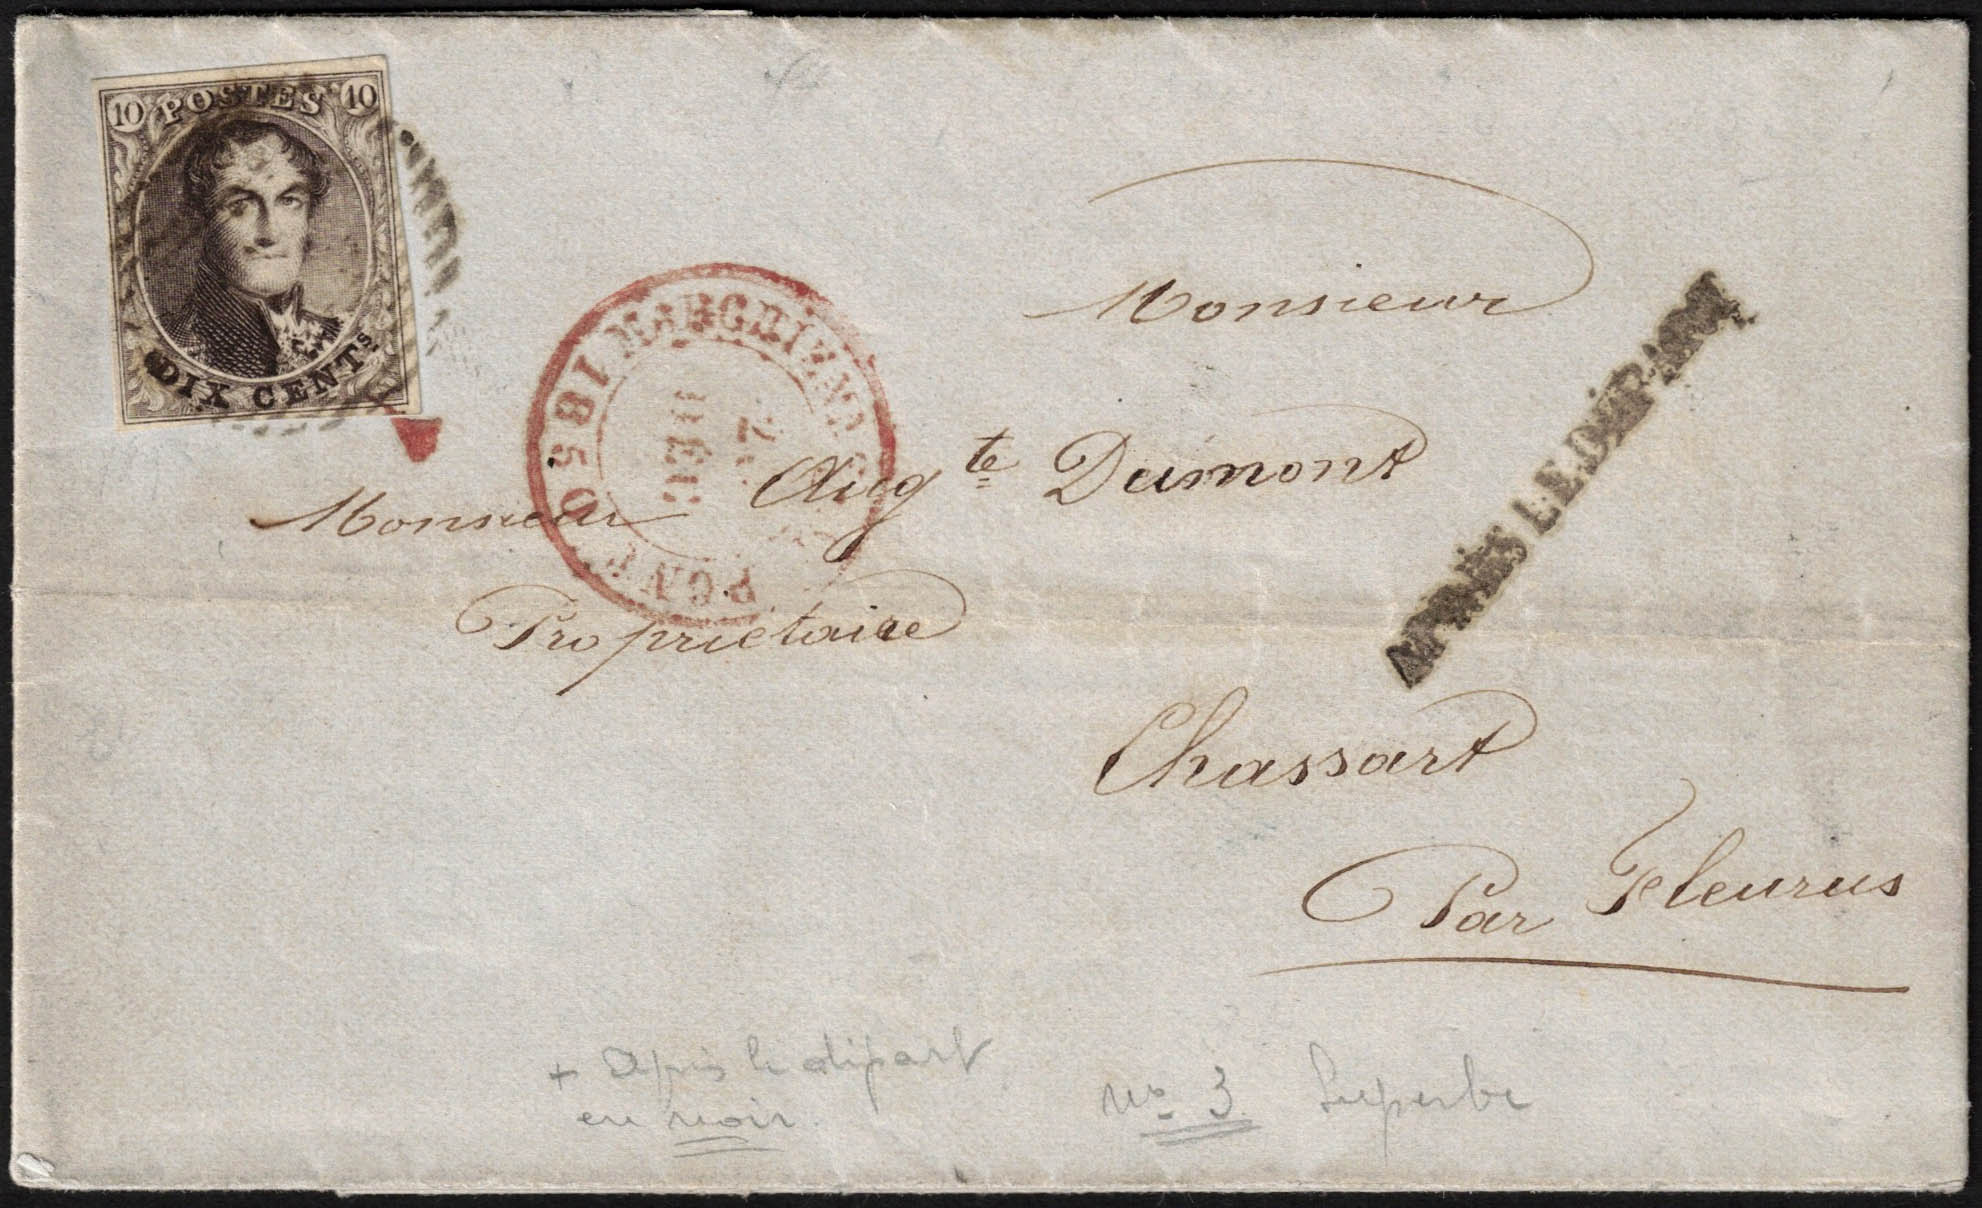 10 POSTES 10
DIX CENTS.
1850
11 DEC
APRÈS LE DÉPART
Monsieur
Monsieur Augte Dumont
Propriétaire
Chassart
Par Fleurus
+ Après le départ
en noir.
No 3 Superbe